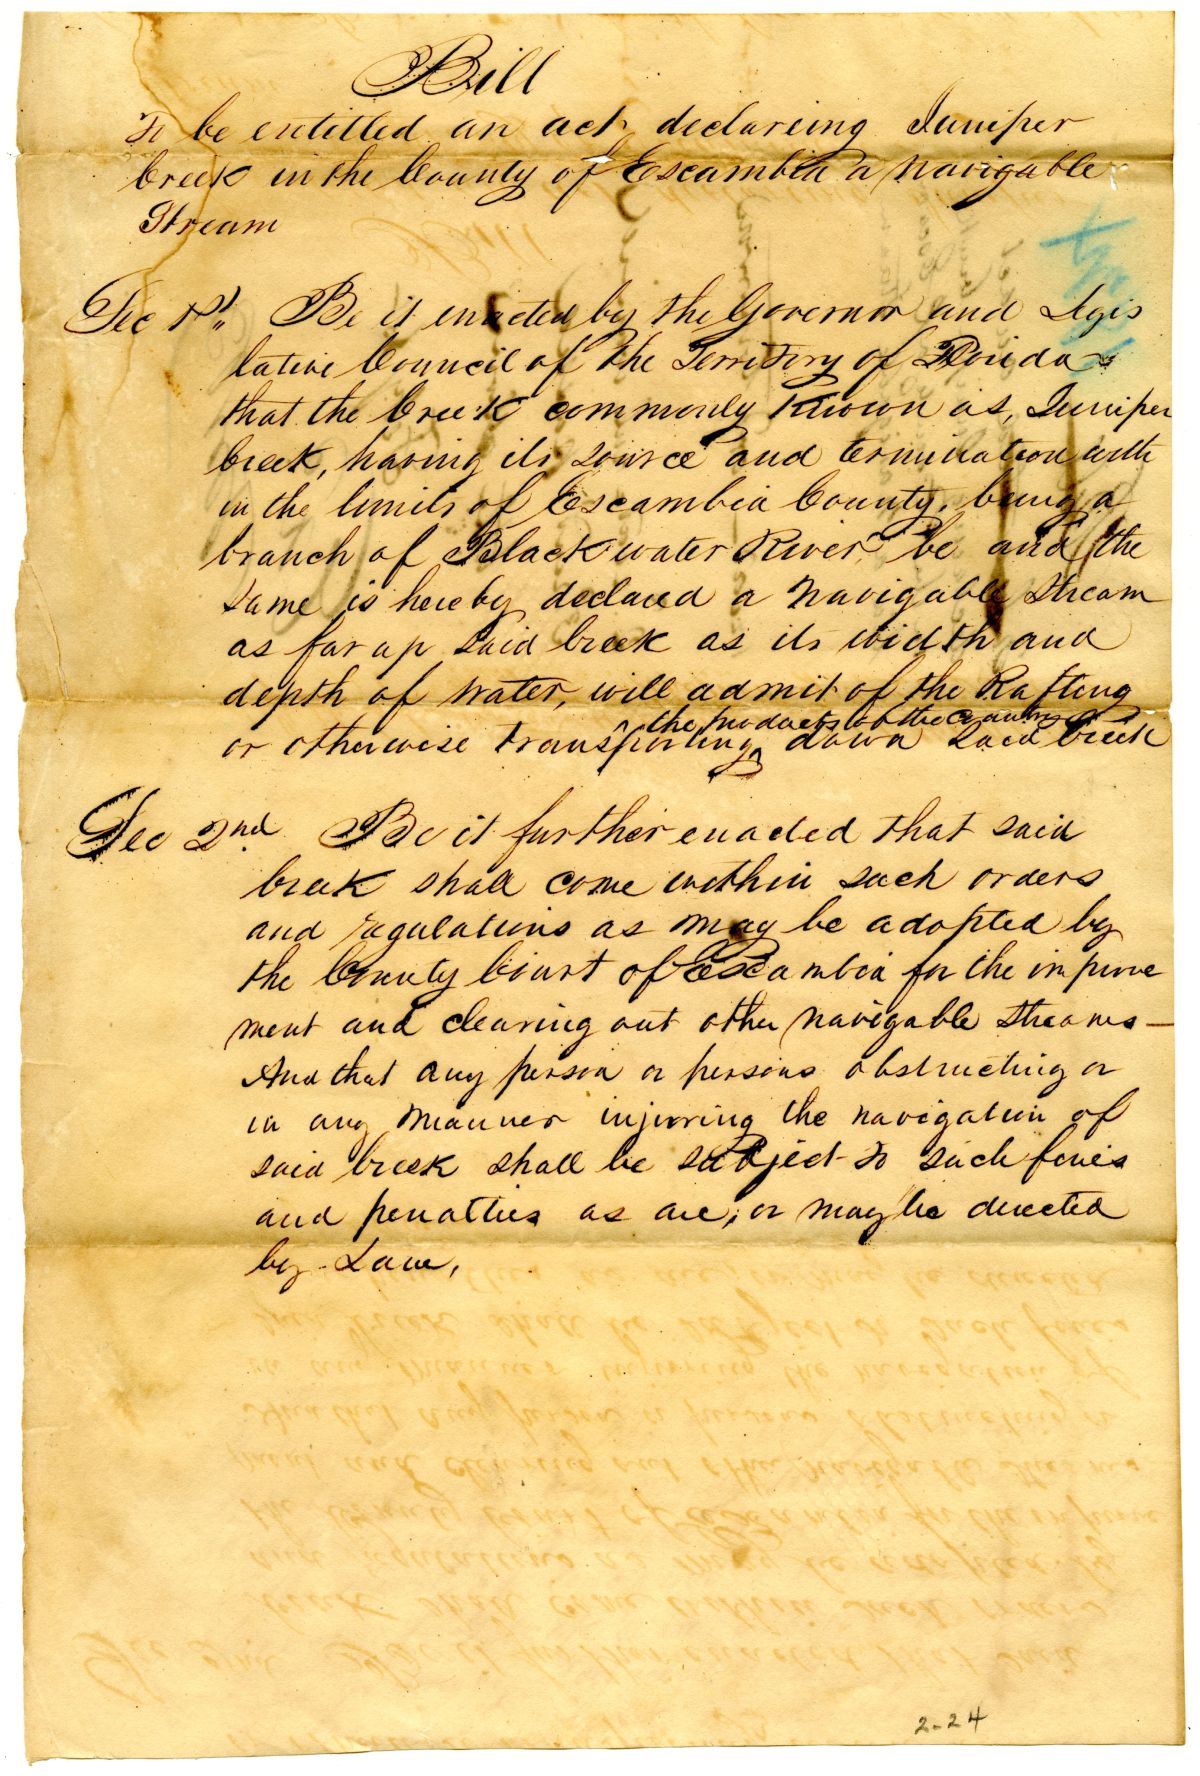 Bill
To be entitled an act, declareing Juniper
Creek in the County of Escambia a Navigable
Stream
Sec 1st. Be it enacted by the Governor and Legis
lative Council of the Territory of Florida
that the Creek commonly Known as, Juniper
Creek, having its source and termination with
in the limits of Escambia County, being a
branch of Black water River, be and the
same is hereby declared a Navigable Stream
as far up said Creek as its width and
depth of water, will admit of the Rafting
the products of the Country
or otherwise transporting down said Creek
Sec 2nd. Be it further enacted that said
Creek shall come within such orders
and regulations as may be adopted by
the County Court of Escambia for the improve
ment and clearing out other Navigable Streams—
And that any person or persons obstructing or
in any manner injuring the navigation of
said Creek shall be subject to such fines
and penalties as are, or may be directed
by Law,
2-24